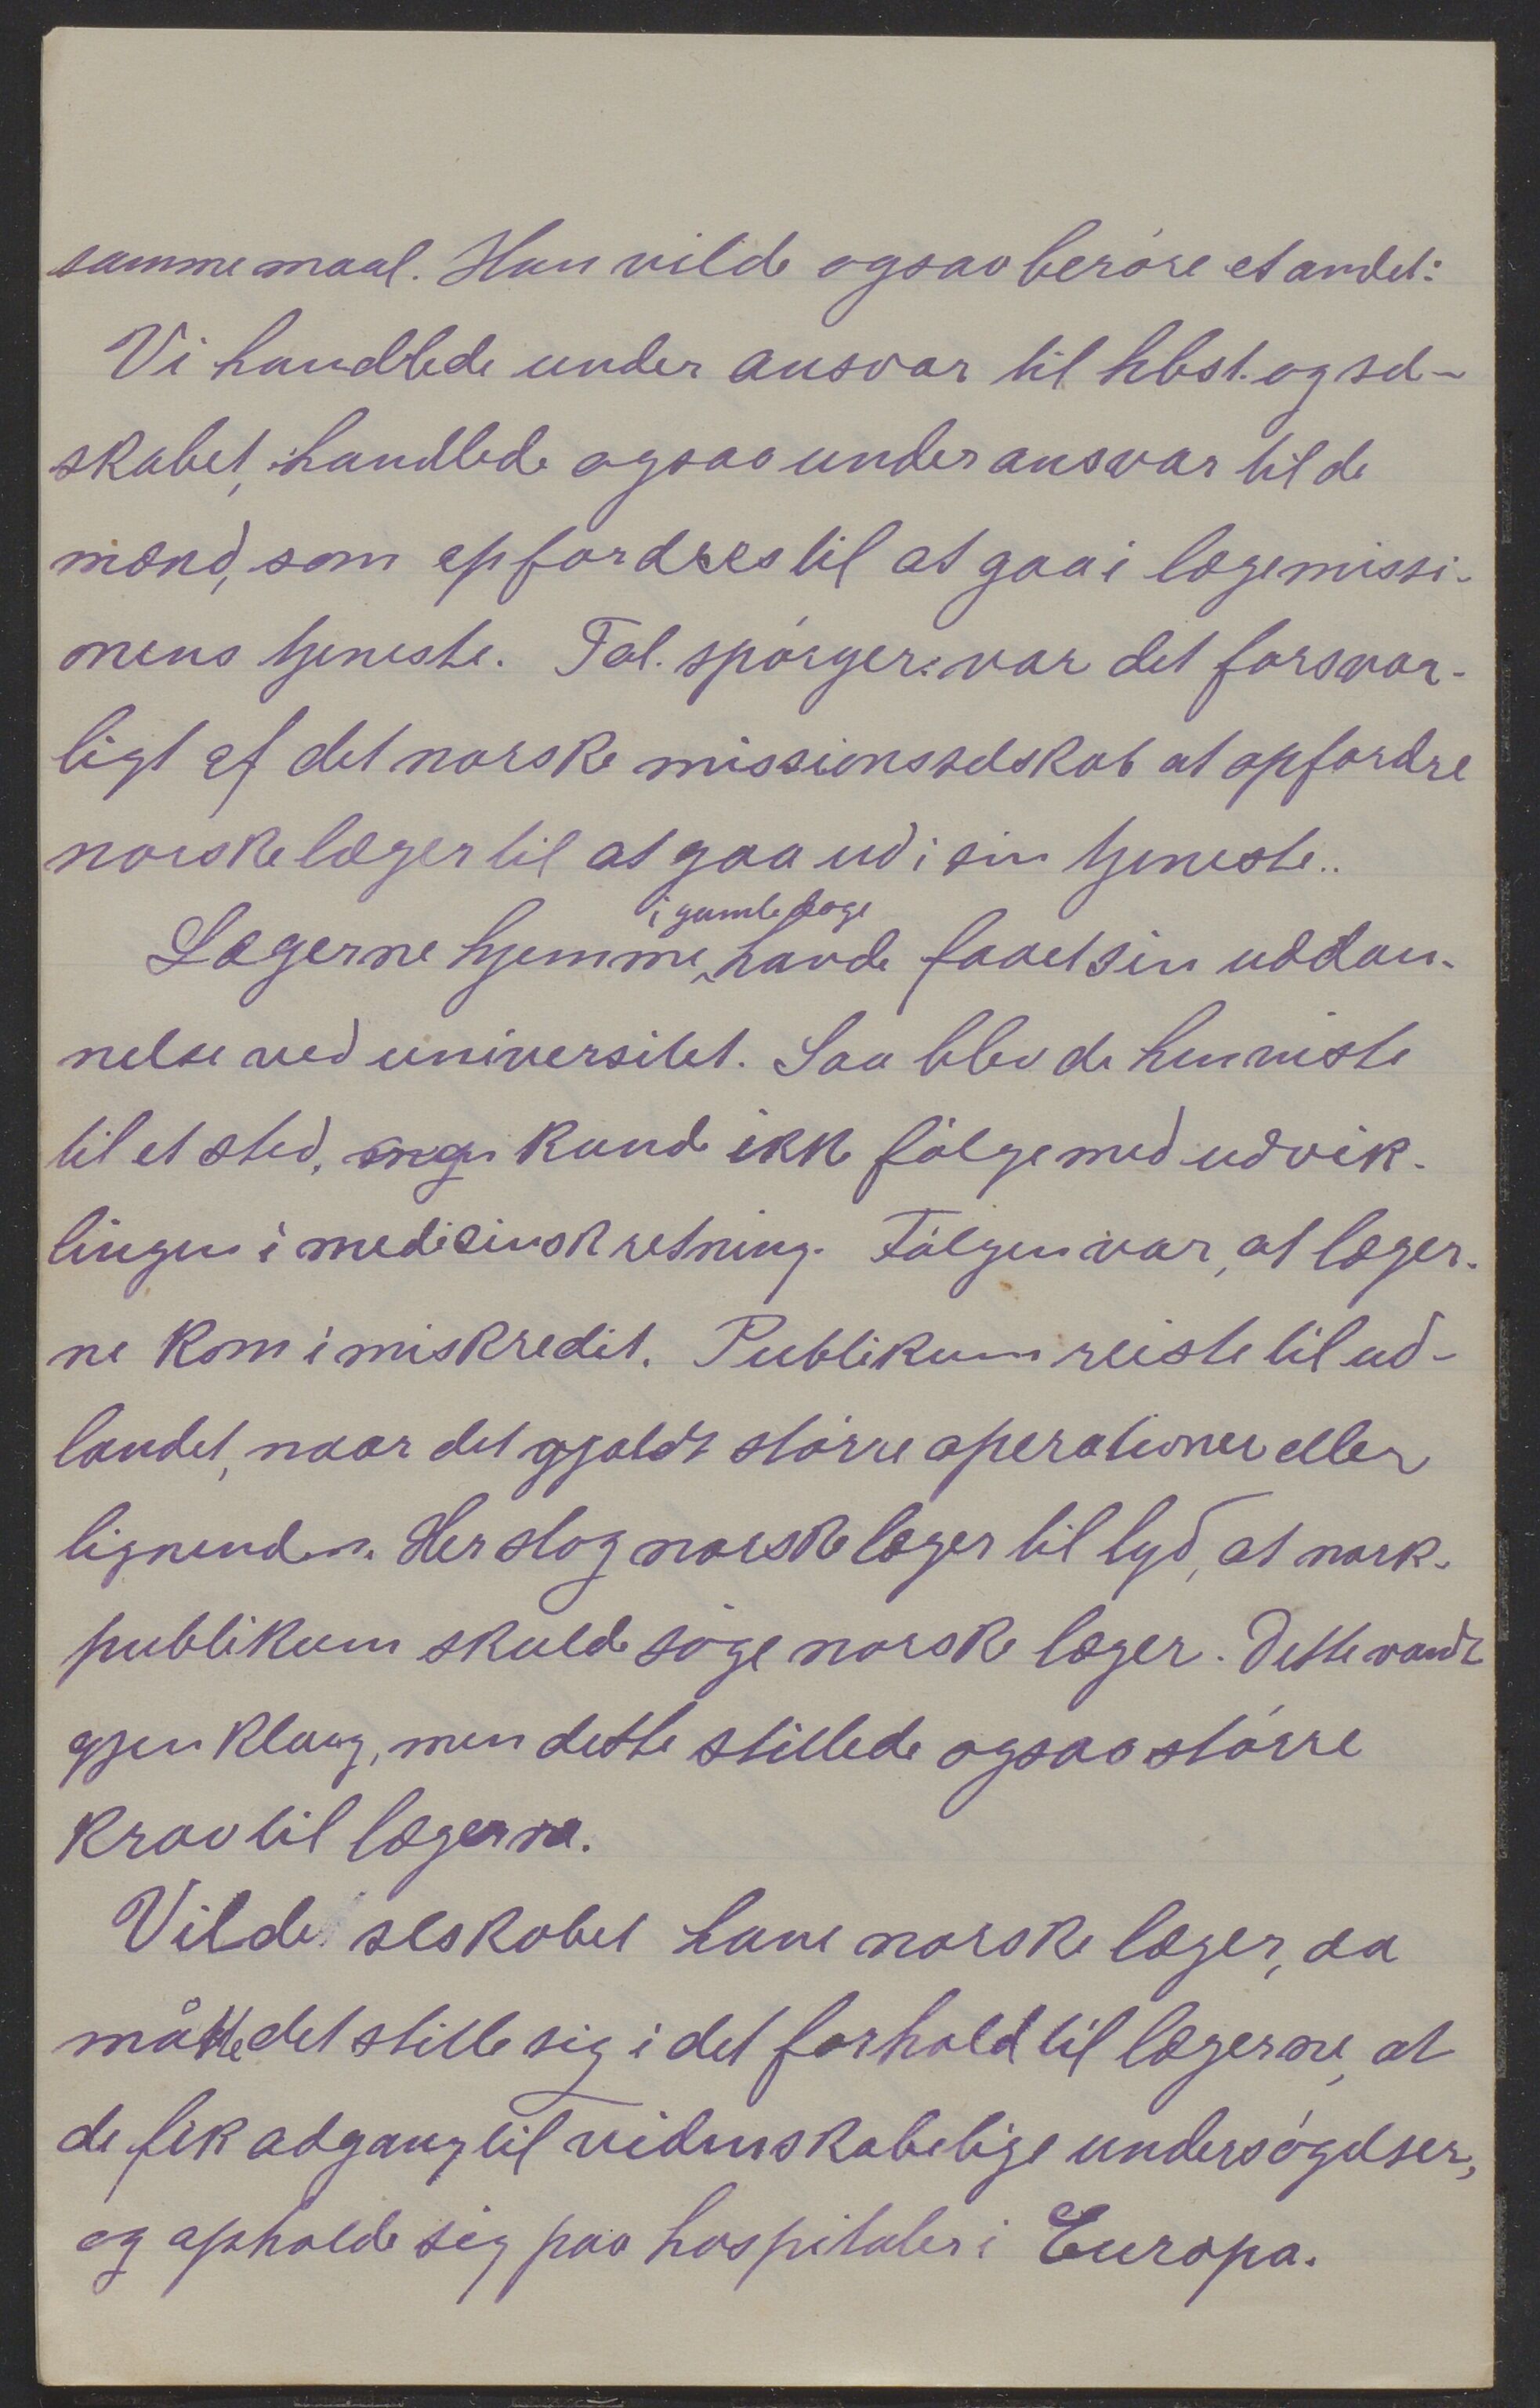 samme maal. Han vilde ogsaa berøre et andet:
Vi handlede under ansvar til hbst. og sel-
skabet, handlede ogsaa under ansvar til de
mænd, som opfordres til at gaa i lægemissi-
onens tjeneste. Tal. spørger: var det forsvar-
ligt af det norske missionsselskab at opfordre
norske læger til at gaa ud i sin tjeneste..
i gamle dage
Lægerne hjemme havde faaet sin uddan-
nelse ved universitet. Saa blev de henviste
til et sted, kunde ikke følge med udvik-
lingen i medicinsk retning. Følgen var, at læger-
ne kom i miskredit. Publikum reiste til ud-
landet, naar det gjaldt større operationer eller
lignenden. Her slog norske læger til lyd, at norsk
publikum skulde søge norske læger. Dette vandt
gjenklang, men dette stillede ogsaa større
krav til lægerne.
Vilde selskabet have norske læger, da
måtte det stille sig i det forhold til lægerne, at
de fik adgang til videnskabelige undersøgelser,
og opholde sig paa hospitaler i Europa.